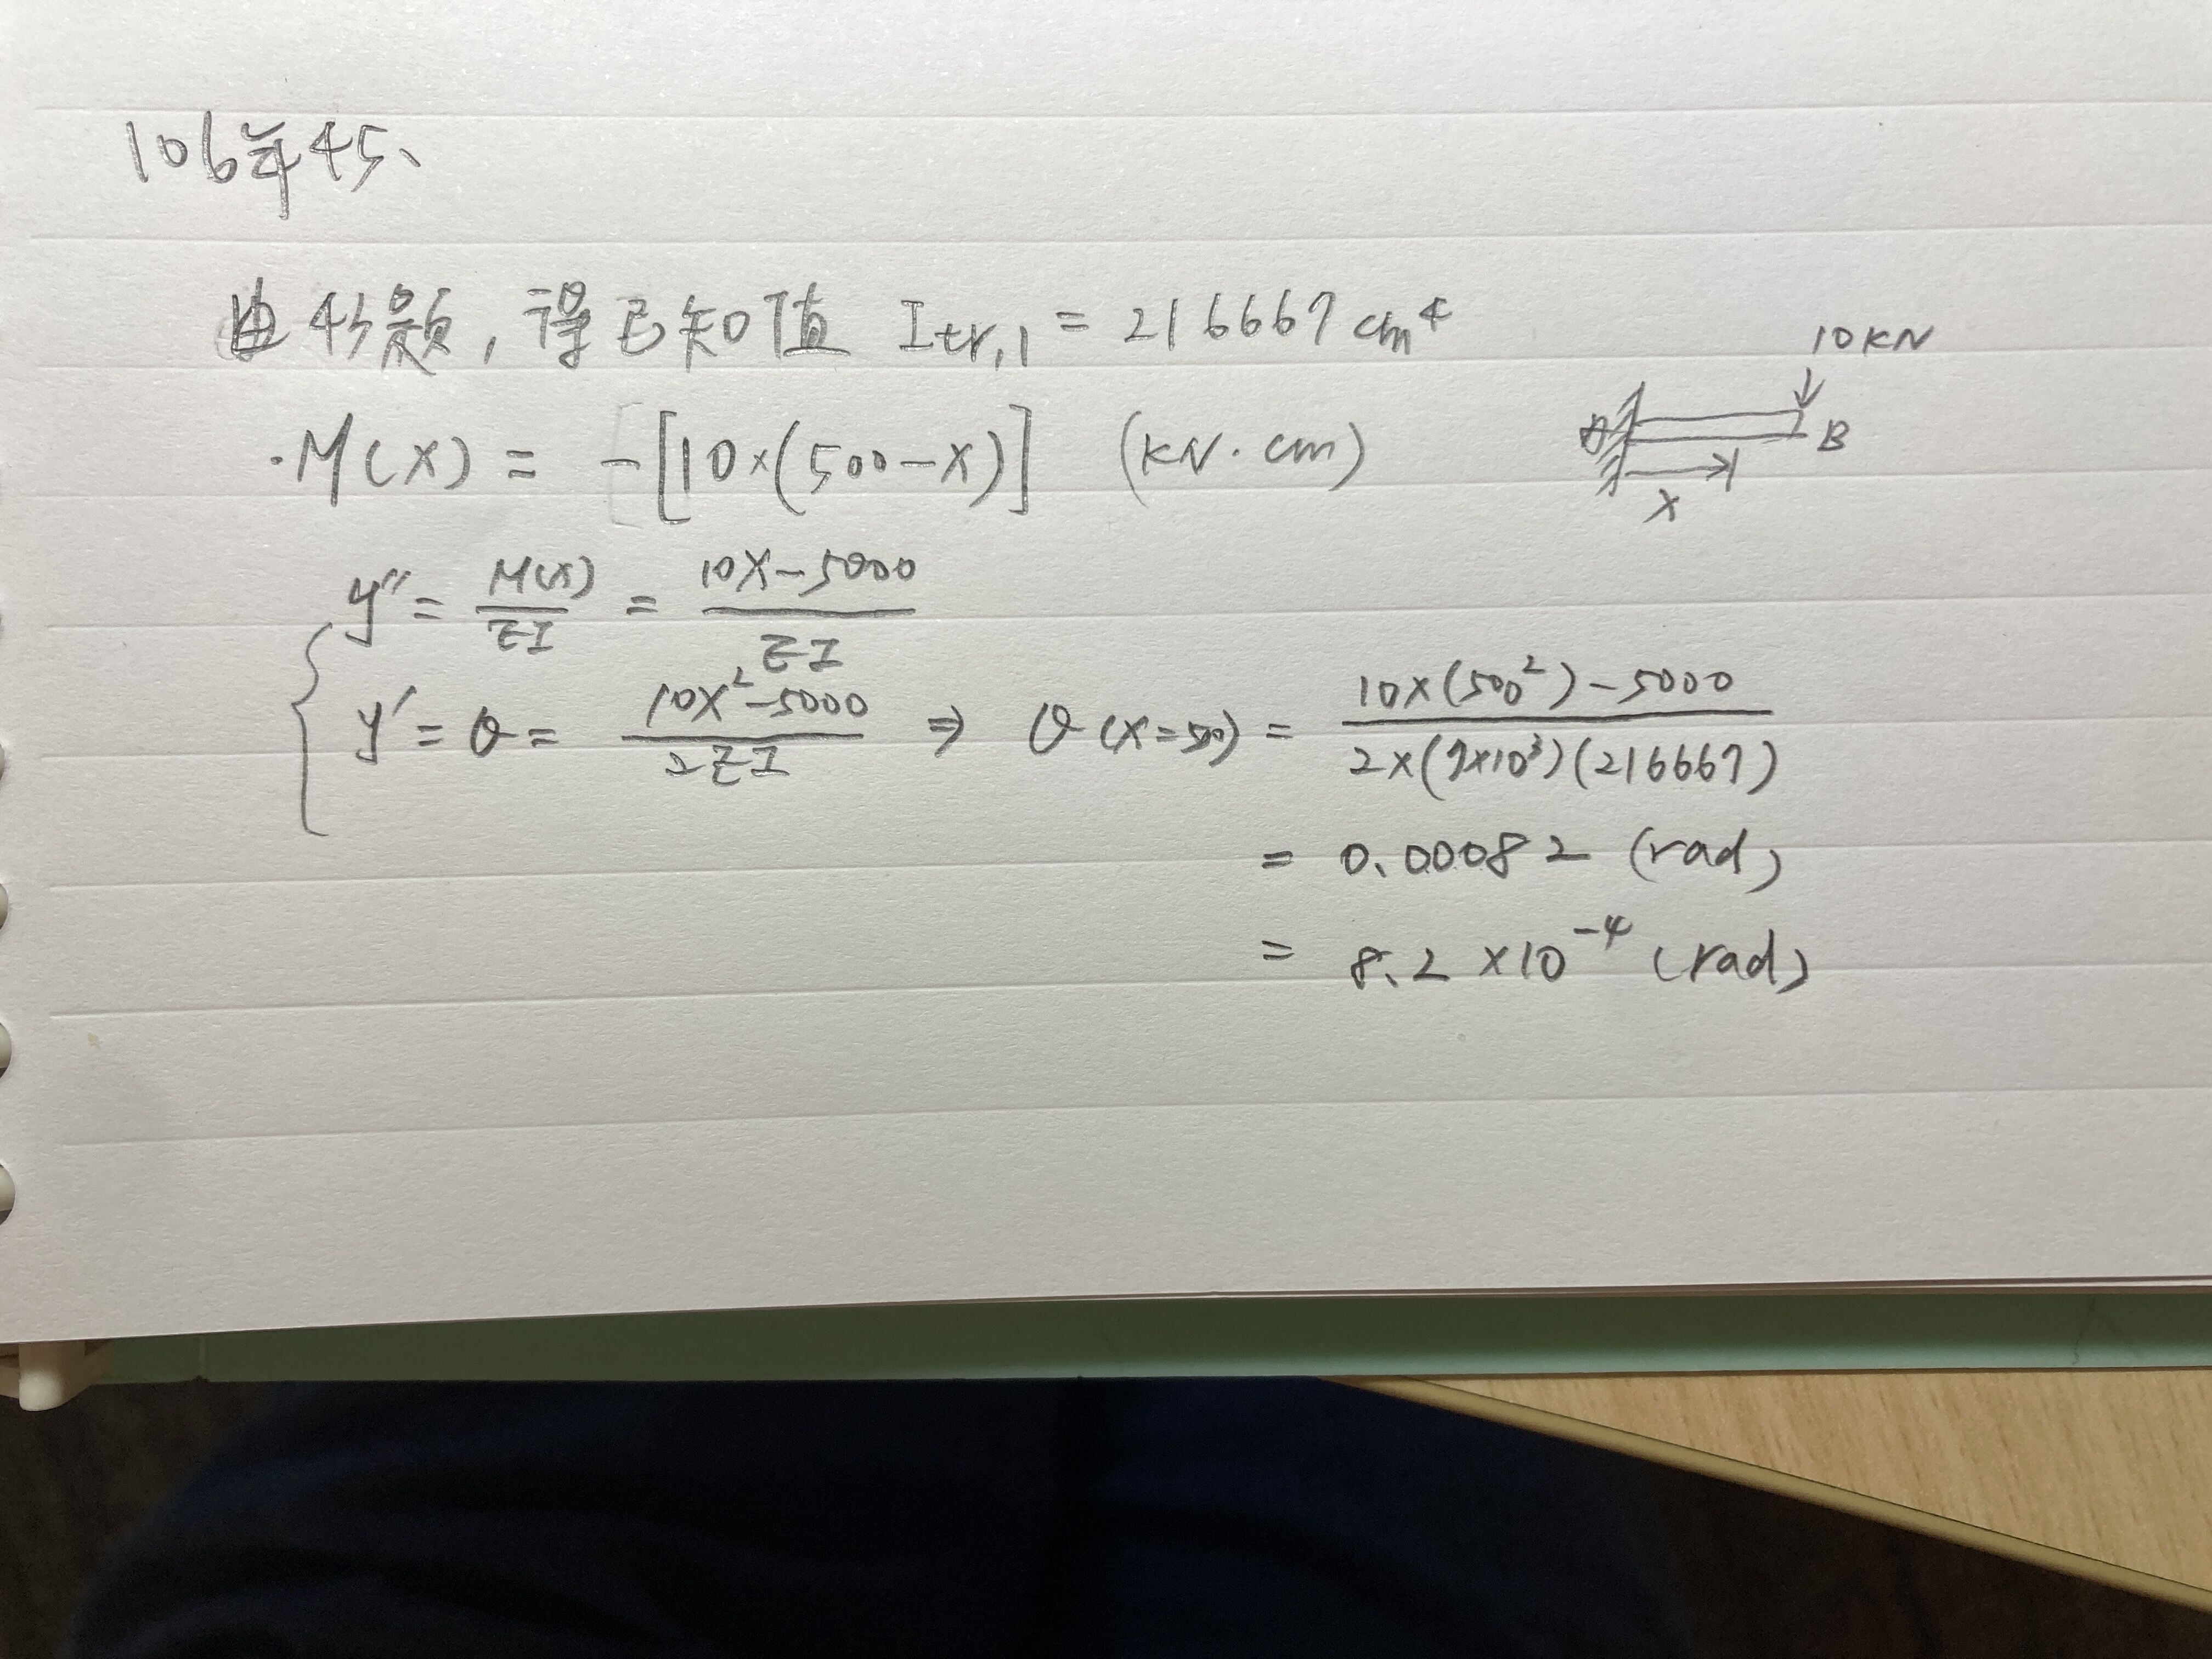 106年45、
由43題，得已知值 Itr,1 = 216667 cm⁴
10KN
·M(X) = -[10×(500-X)] (KN·cm)
B
X
y'' = M(X)/EI = (10X-5000)/EI
y' = θ = (10X²-5000)/2EI ⇒ θ(X=500) = (10×(500²)-5000)/(2×(7×10³)(216667))
= 0.00082 (rad)
= 8.2 ×10⁻⁴ (rad)